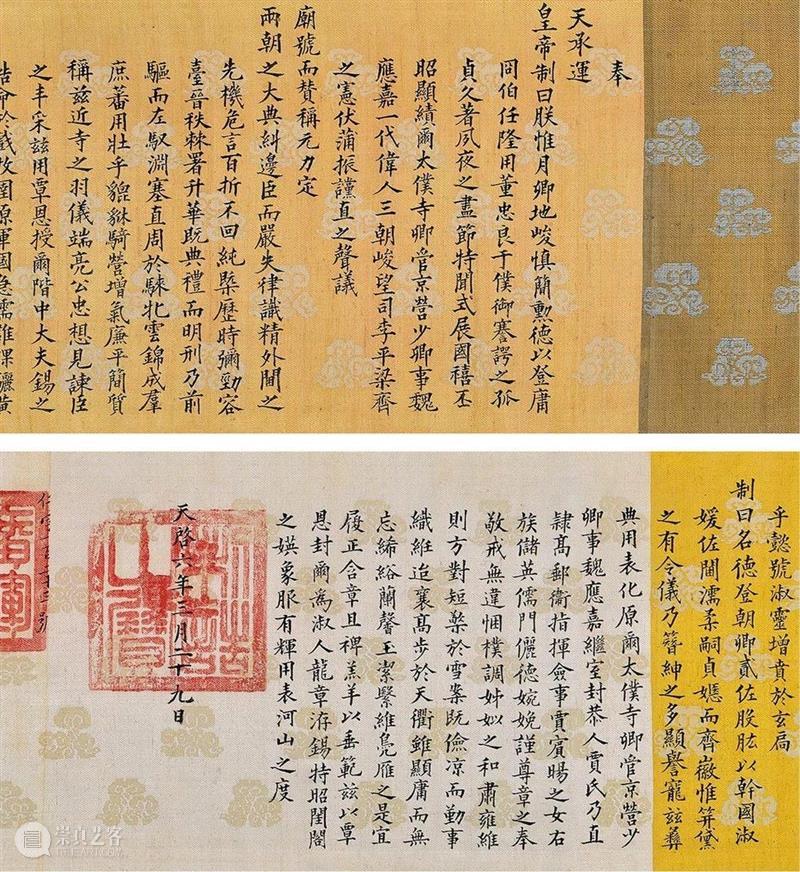 奉
天承運
皇帝制曰朕惟月卿地峻慎簡勲德以登庸
冏伯任隆用董忠良于僕御謇諤之孤
貞久著夙夜之盡節特聞式展國禧丕
昭顯績爾太僕寺卿管京營少卿事魏
應嘉一代偉人三朝峻望司李平梁齊
之憲伏蒲振讜直之聲議
廟號而贊稱元力定
兩朝之大典糾邊臣而嚴失律識精外閫之
先機危言百折不回純槩歷時彌勁容
臺晉秩棘署升華既典禮而明刑乃前
驅而左馭淵塞直周於騋牝雲錦成羣
庶蕃用壯乎貔貅騎營增氣廉平簡質
稱茲近寺之羽儀端亮公忠想見諫臣
之丰采茲用覃恩授爾階中大夫錫之
誥命於戲牧圉原軍國急需雖騋驪黃
乎懿號淑靈增賁於玄扃
制曰名德登朝卿貳佐股肱以幹國淑
媛佐閫濡柔嗣貞嫕而齊徽惟笄黛
之有令儀乃簪紳之多顯譽寵茲彞
典用表化原爾太僕寺卿管京營少
卿事魏應嘉繼室封恭人賈氏乃直
隸高郵衛指揮僉事賈賓暘之女右
族儲英儒門儷德婉娩謹尊章之奉
敬戒無違悃樸調姊姒之和肅雍維
則方對短檠於雪案既儉凉而勤事
織維迨襄高步於天衢雖顯庸而無
忘絺綌蘭馨玉潔繄維鳧雁之是宜
履正含章且裨羔羊以垂範茲以覃
恩封爾為淑人龍章洊錫特昭閨閤
之媖象服有輝用表河山之度
天啓六年三月二十九日
崇真艺客